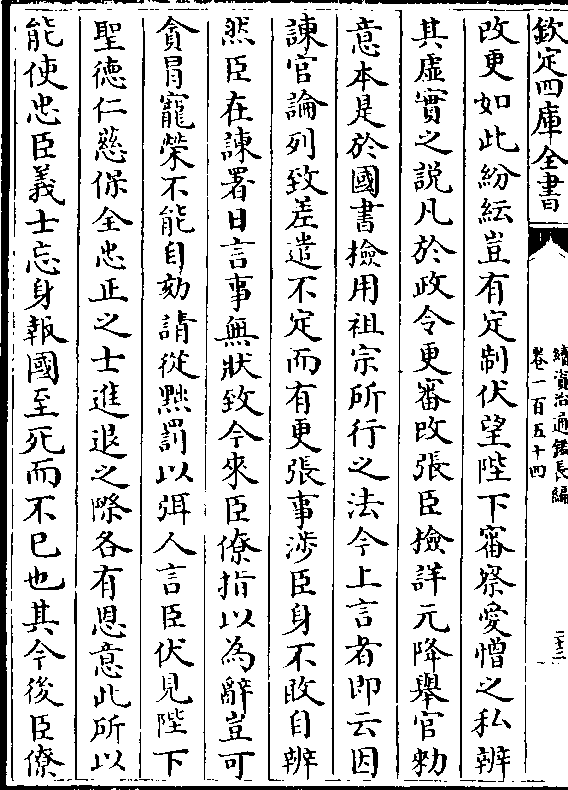 欽定四庫全書
續資治通鑑長編
卷一百五十四
改更如此紛紜豈有定制伏望陛下審察愛憎之私辨
其虛實之説凡於政令更審改張臣撿詳元降舉官勑
意本是於國書撿用祖宗所行之法今上言者即云因
諫官論列致差遣不定而有更張事涉臣身不敢自辨
然臣在諫署日言事無狀致今來臣僚指以為辭豈可
貪冐寵榮不能自劾請從黜罰以弭人言臣伏見陛下
聖德仁慈保全忠正之士進退之際各有恩意此所以
能使忠臣義士忘身報國至死而不已也其今後臣僚